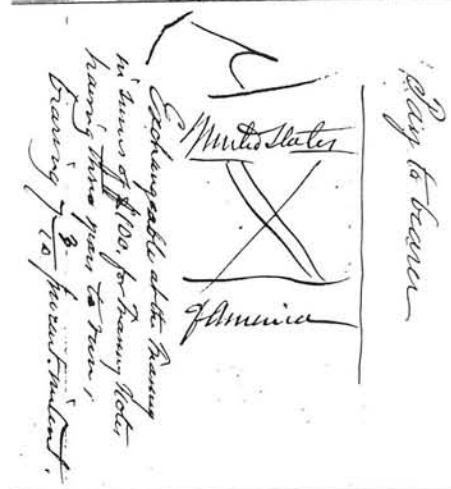 Pay to bearer
United States
X
of America
Exchangeable at the Treasury
in sums of $100, for Treasury Notes,
having three years to run,
bearing 7 3/10 percent. interest.